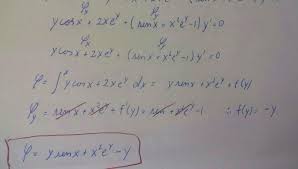 φₓ φᵧ
y cosx + 2xeʸ + (senx + x²eʸ - 1) y' = 0
φₓ φᵧ
y cosx + 2xeʸ + (senx + x²eʸ - 1) y' = 0
φ = ∫ˣ y cosx + 2xeʸ dx = y senx + x²eʸ + f(y)
φᵧ = senx + x²eʸ + f'(y) = senx + x²eʸ - 1 ∴ f(y) = -y
φ = y senx + x²eʸ - y